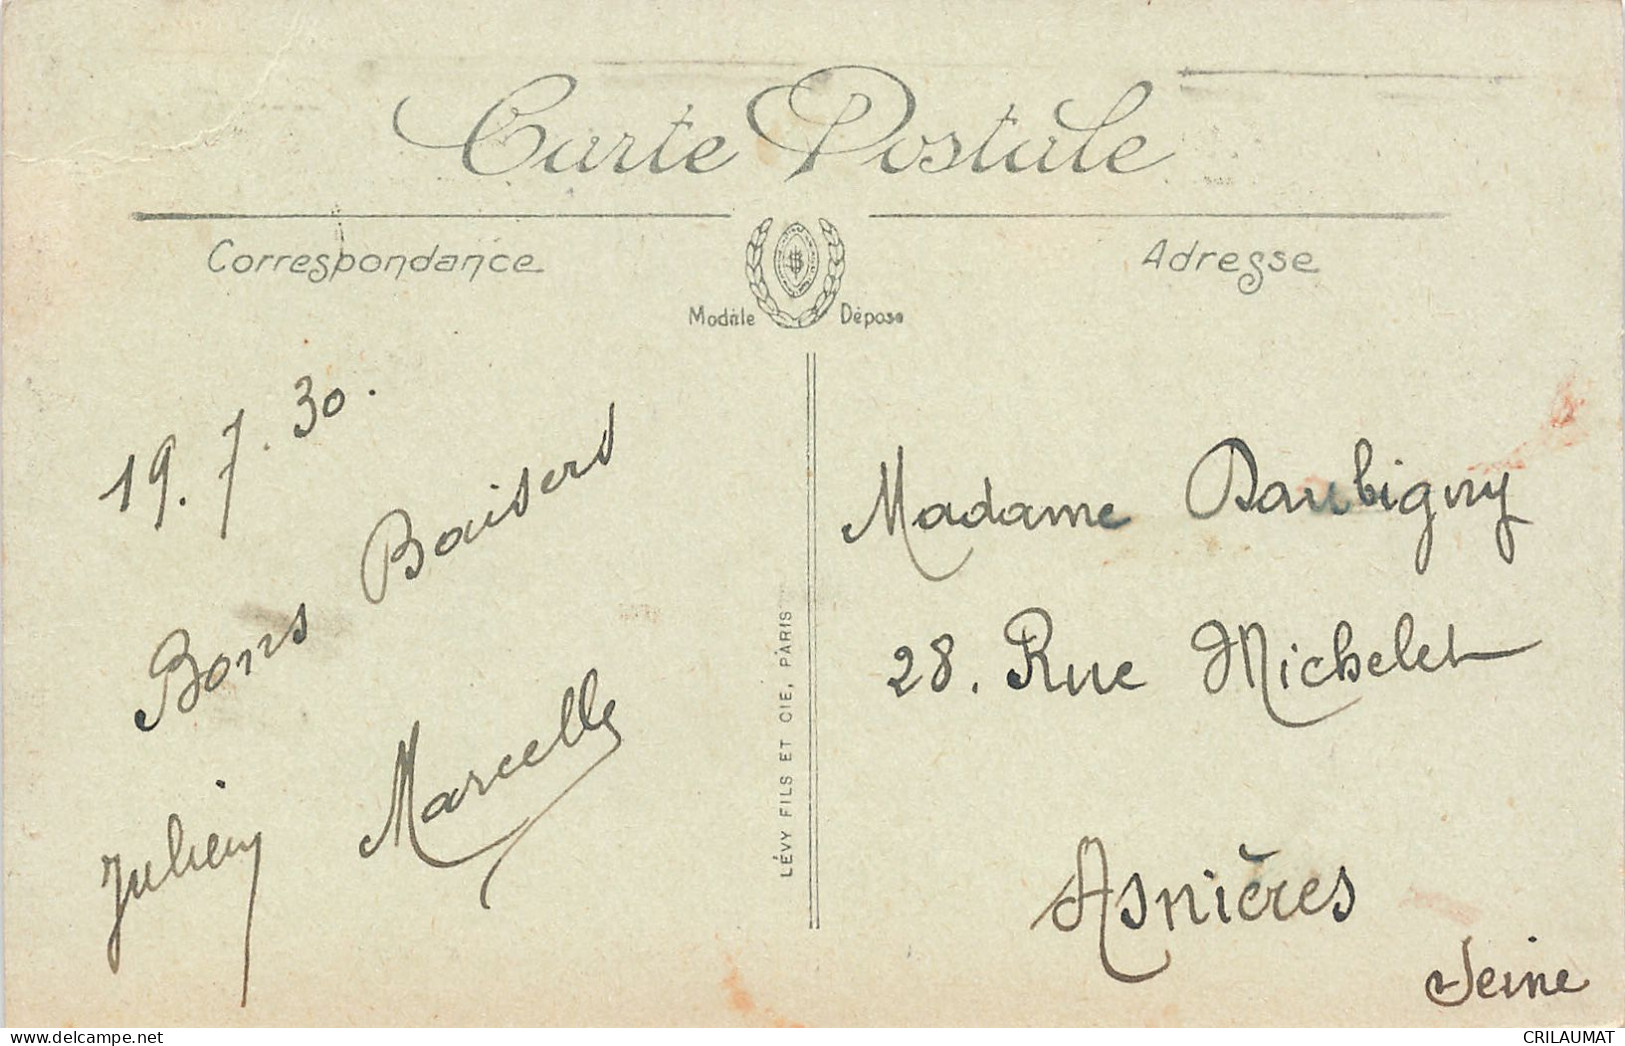 Carte Postale
Correspondance
Adresse
Modèle Déposé
19.7.30.
Bons Baisers
Julien Marcelle
LÉVY FILS ET CIE, PARIS
Madame Daubigny
28. Rue Michelet
Asnières
Seine
delcampe.net
CRILAUMAT